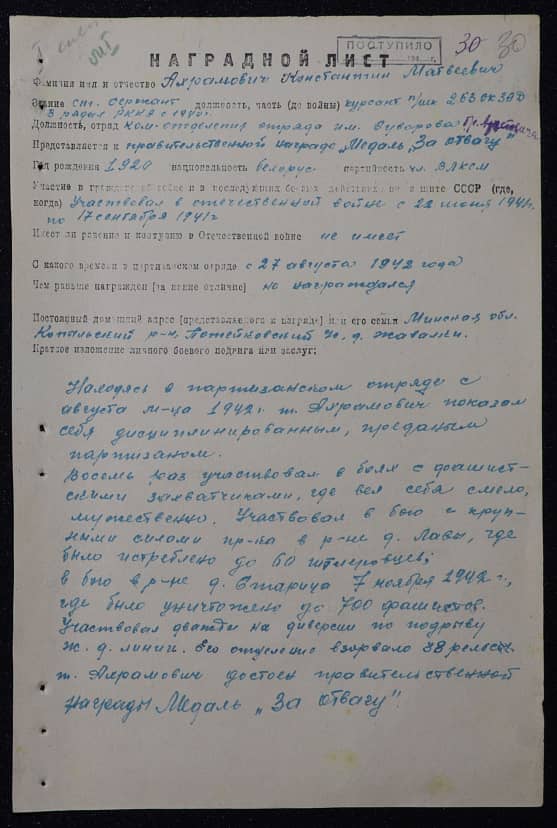 ПОСТУПИЛО
30 30
НАГРАДНОЙ ЛИСТ
Фамилия имя и отчество Ахрамович Константин Матвеевич
Звание ст. сержант должность, часть (до войны) курсант
В рядах РККА с 1940 г.
Должность, отряд Ком. отделения отряда им. Суворова
Представляется к правительственной награде „Медаль „За отвагу"
Год рождения 1920 национальность белорус партийность чл. ВЛКСМ
Участие в гражданской войне и в последующих боевых действиях по защите СССР (где,
когда) Участвовал в отечественной войне с 22 июня 1941г.
по 17 сентября 1941г
Имеет ли ранения и контузию в Отечественной войне не имеет
С какого времени в партизанском отряде с 27 августа 1942 года
Чем раньше награжден (за какие отличие) не награждался
Постоянный домашний адрес (представляемого к награде) или его семьи Минская обл.
Копыльский р-н, с/с, д. Жавалки.
Краткое изложение личного боевого подвига или заслуг:
Находясь в партизанском отряде с
августа м-ца 1942г. т. Ахрамович показал
себя дисциплинированным, преданым
партизаном.
Восемь раз участвовал в боях с фашист-
скими захватчиками, где вел себя смело,
мужественно. Участвовал в бою с круп-
ными силами пр-ка в р-не д. Лавы, где
было истреблено до 60 гитлеровцев;
в бою в р-не д. Старица 7 ноября 1942г.,
где было уничтожено до 700 фашистов.
Участвовал дважды на диверсии по подрыву
ж. д. линии. Его отделение взорвало 38 рельсы.
т. Ахрамович достоен правительственной
награды Медаль „За отвагу".